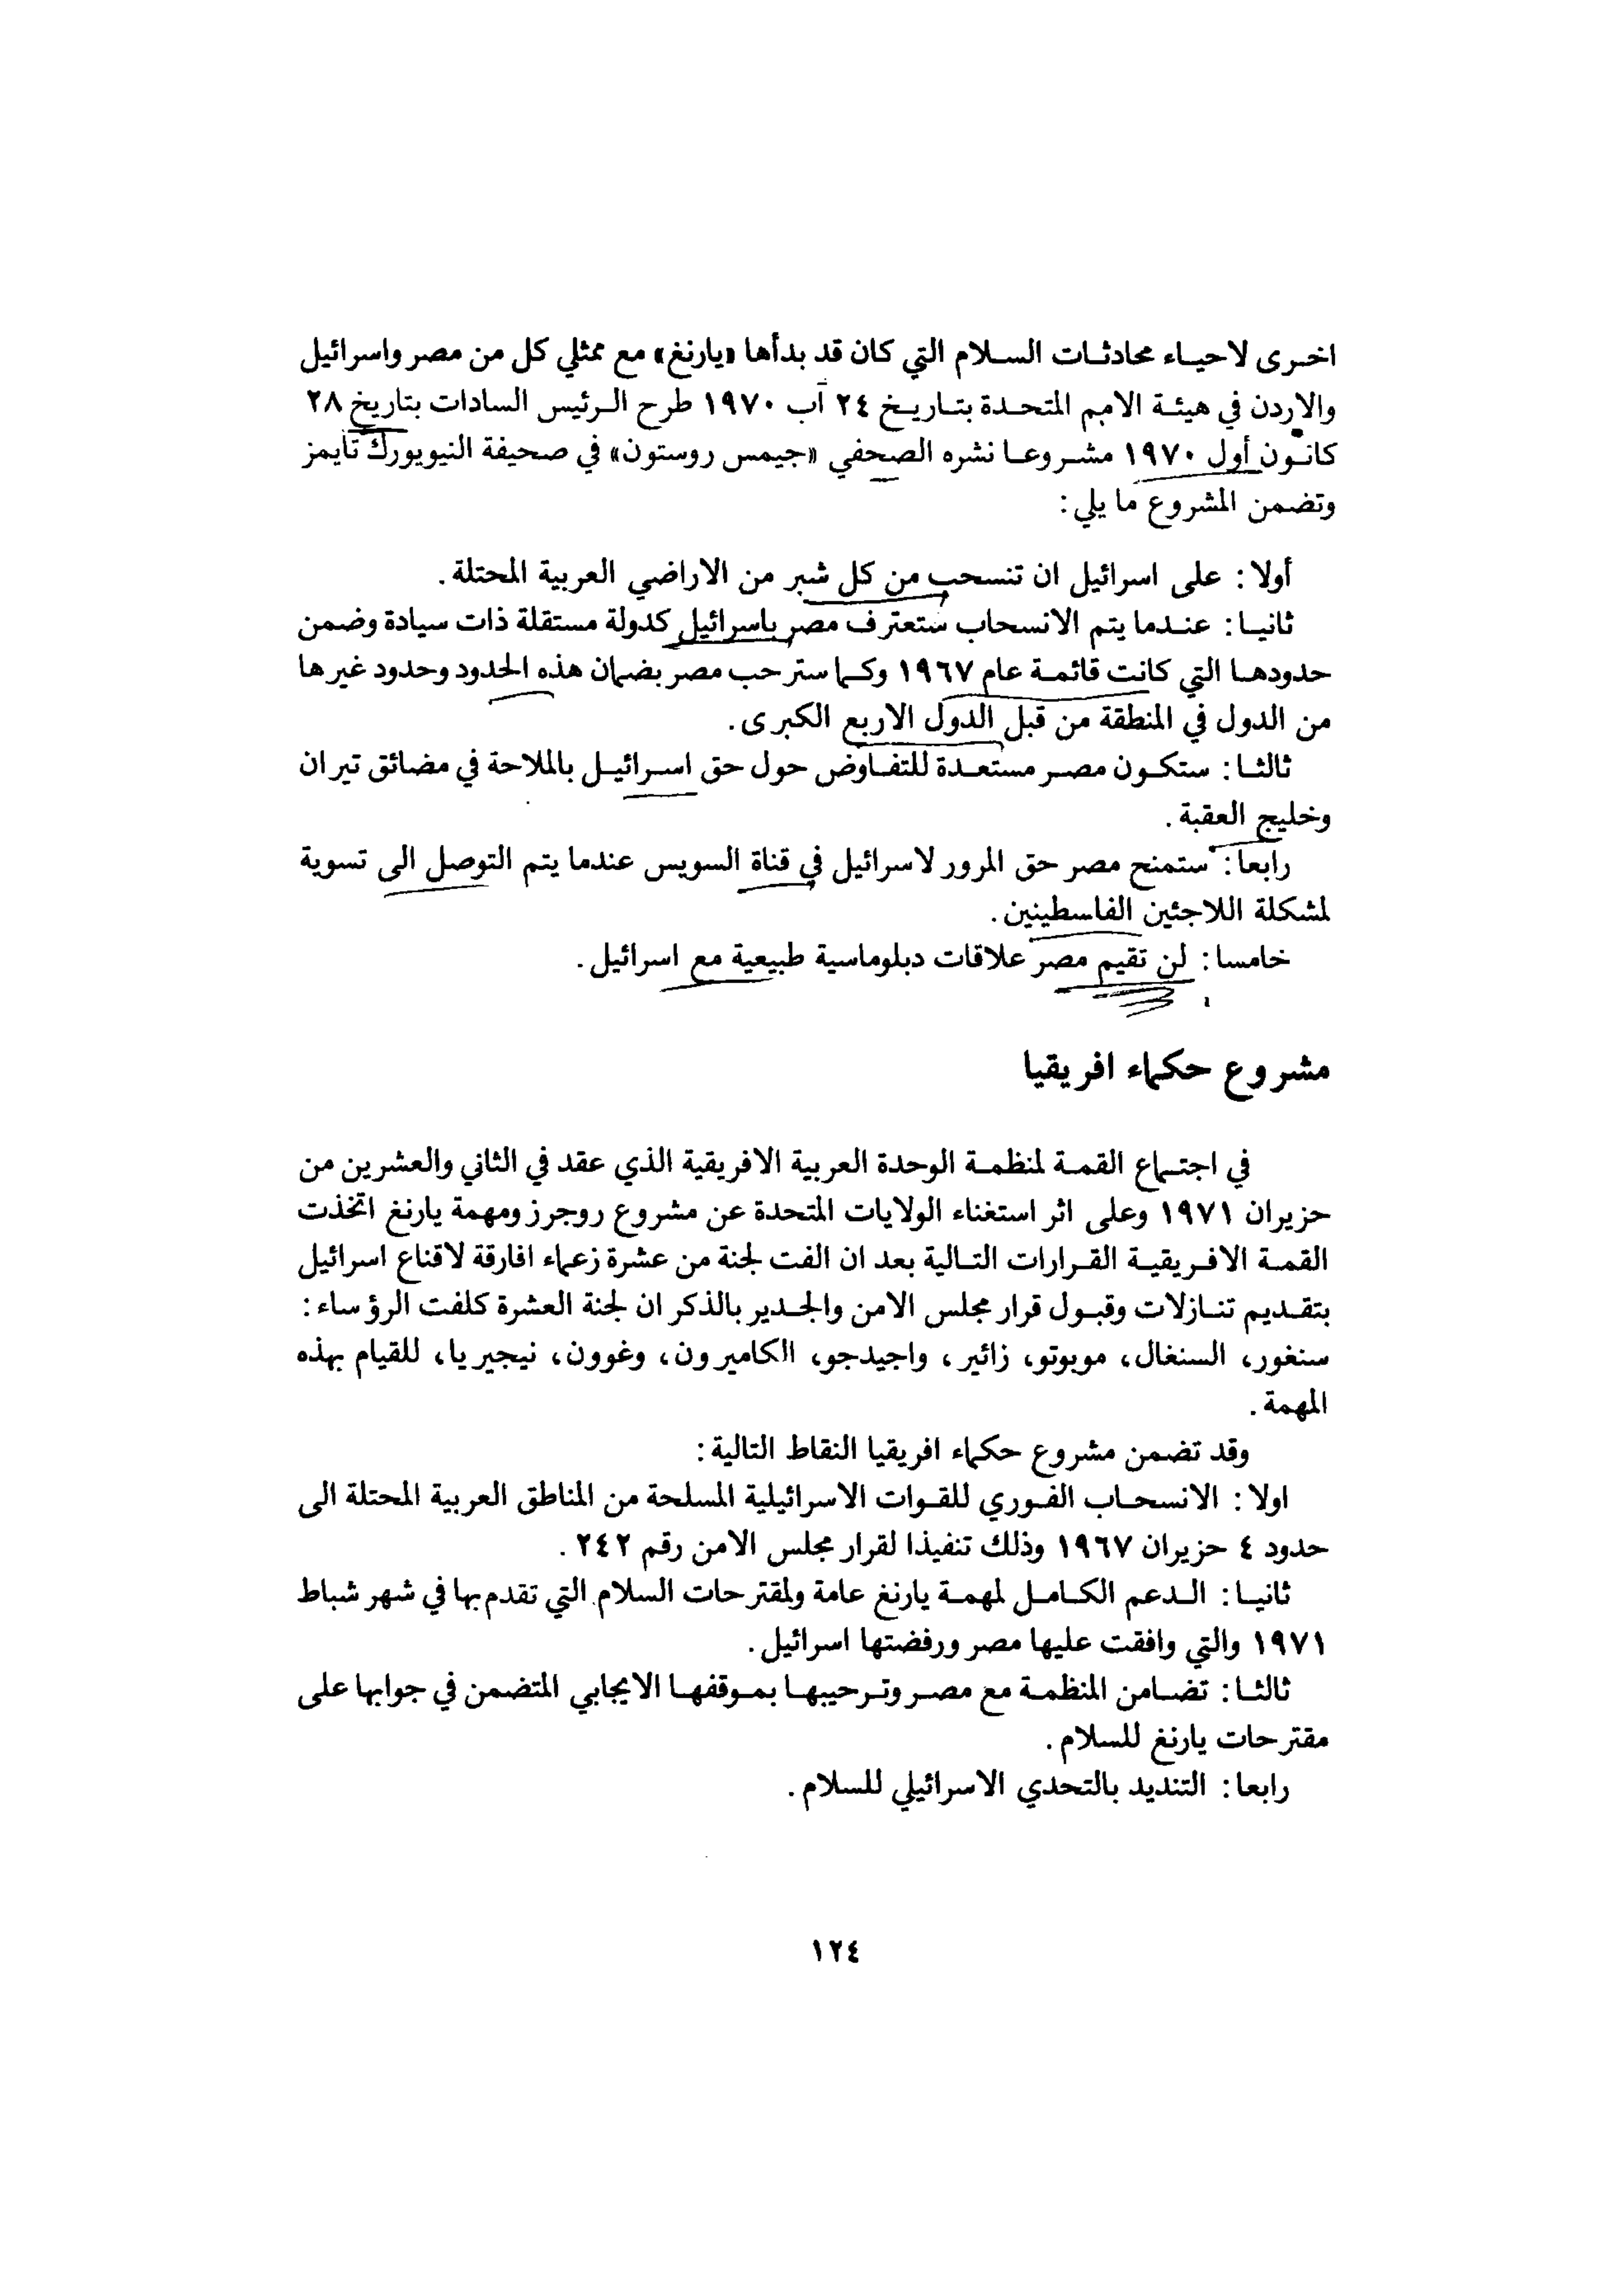 اخرى لاحياء محادثات السلام التي كان قد بدأها «يارنغ» مع ممثلي كل من مصر واسرائيل
والاردن في هيئة الامم المتحدة بتاريخ ٢٤ آب ١٩٧٠ طرح الرئيس السادات بتاريخ ٢٨
كانون أول ١٩٧٠ مشروعا نشره الصحفي «جيمس روستون» في صحيفة النيويورك تايمز
وتضمن المشروع ما يلي:
أولا: على اسرائيل ان تنسحب من كل شبر من الاراضي العربية المحتلة.
ثانيا: عندما يتم الانسحاب ستعترف مصر باسرائيل كدولة مستقلة ذات سيادة وضمن
حدودها التي كانت قائمة عام ١٩٦٧ وكما سترحب مصر بضمان هذه الحدود وحدود غيرها
من الدول في المنطقة من قبل الدول الاربع الكبرى.
ثالثا: ستكون مصر مستعدة للتفاوض حول حق اسرائيل بالملاحة في مضائق تيران
وخليج العقبة.
رابعا: ستمنح مصر حق المرور لاسرائيل في قناة السويس عندما يتم التوصل الى تسوية
لمشكلة اللاجئين الفلسطينين.
خامسا: لن تقيم مصر علاقات دبلوماسية طبيعية مع اسرائيل.
مشروع حكماء افريقيا
في اجتماع القمة لمنظمة الوحدة العربية الافريقية الذي عقد في الثاني والعشرين من
حزيران ١٩٧١ وعلى اثر استغناء الولايات المتحدة عن مشروع روجرز ومهمة يارنغ اتخذت
القمة الافريقية القرارات التالية بعد ان الفت لجنة من عشرة زعماء افارقة لاقناع اسرائيل
بتقديم تنازلات وقبول قرار مجلس الامن والجدير بالذكر ان لجنة العشرة كلفت الرؤساء:
سنغور، السنغال، موبوتو، زائير، واجيدجو، الكاميرون، وغوون، نيجيريا، للقيام بهذه
المهمة.
وقد تضمن مشروع حكماء افريقيا النقاط التالية:
اولا: الانسحاب الفوري للقوات الاسرائيلية المسلحة من المناطق العربية المحتلة الى
حدود ٤ حزيران ١٩٦٧ وذلك تنفيذا لقرار مجلس الامن رقم ٢٤٢.
ثانيا: الدعم الكامل لمهمة يارنغ عامة ولمقترحات السلام التي تقدم بها في شهر شباط
١٩٧١ والتي وافقت عليها مصر ورفضتها اسرائيل.
ثالثا: تضامن المنظمة مع مصر وترحيبها بموقفها الايجابي المتضمن في جوابها على
مقترحات يارنغ للسلام.
رابعا: التنديد بالتحدي الاسرائيلي للسلام.
١٢٤